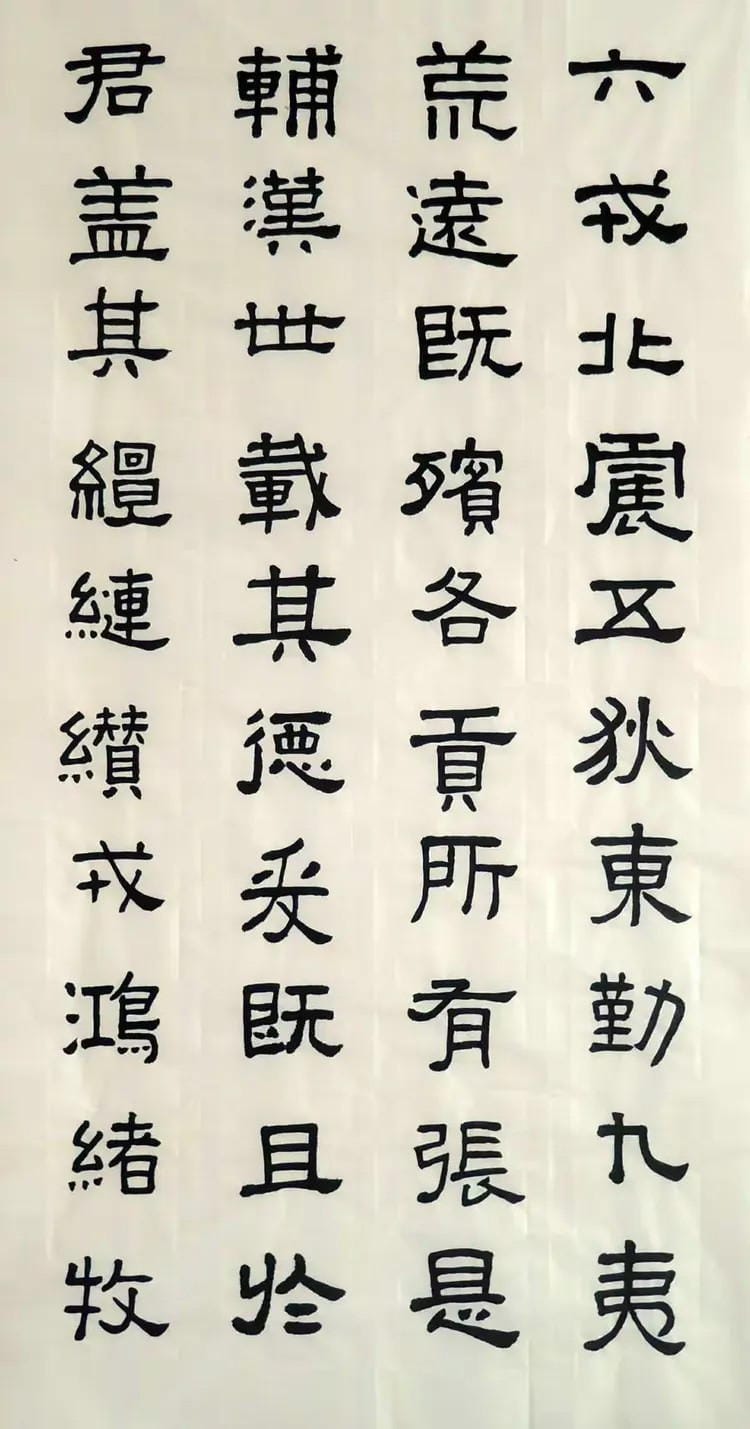 六戎北震五狄東勤九夷
荒遠既殯各貢所有張是
輔漢世載其德爰既且於
君盖其纏縺纘戎鴻緒牧